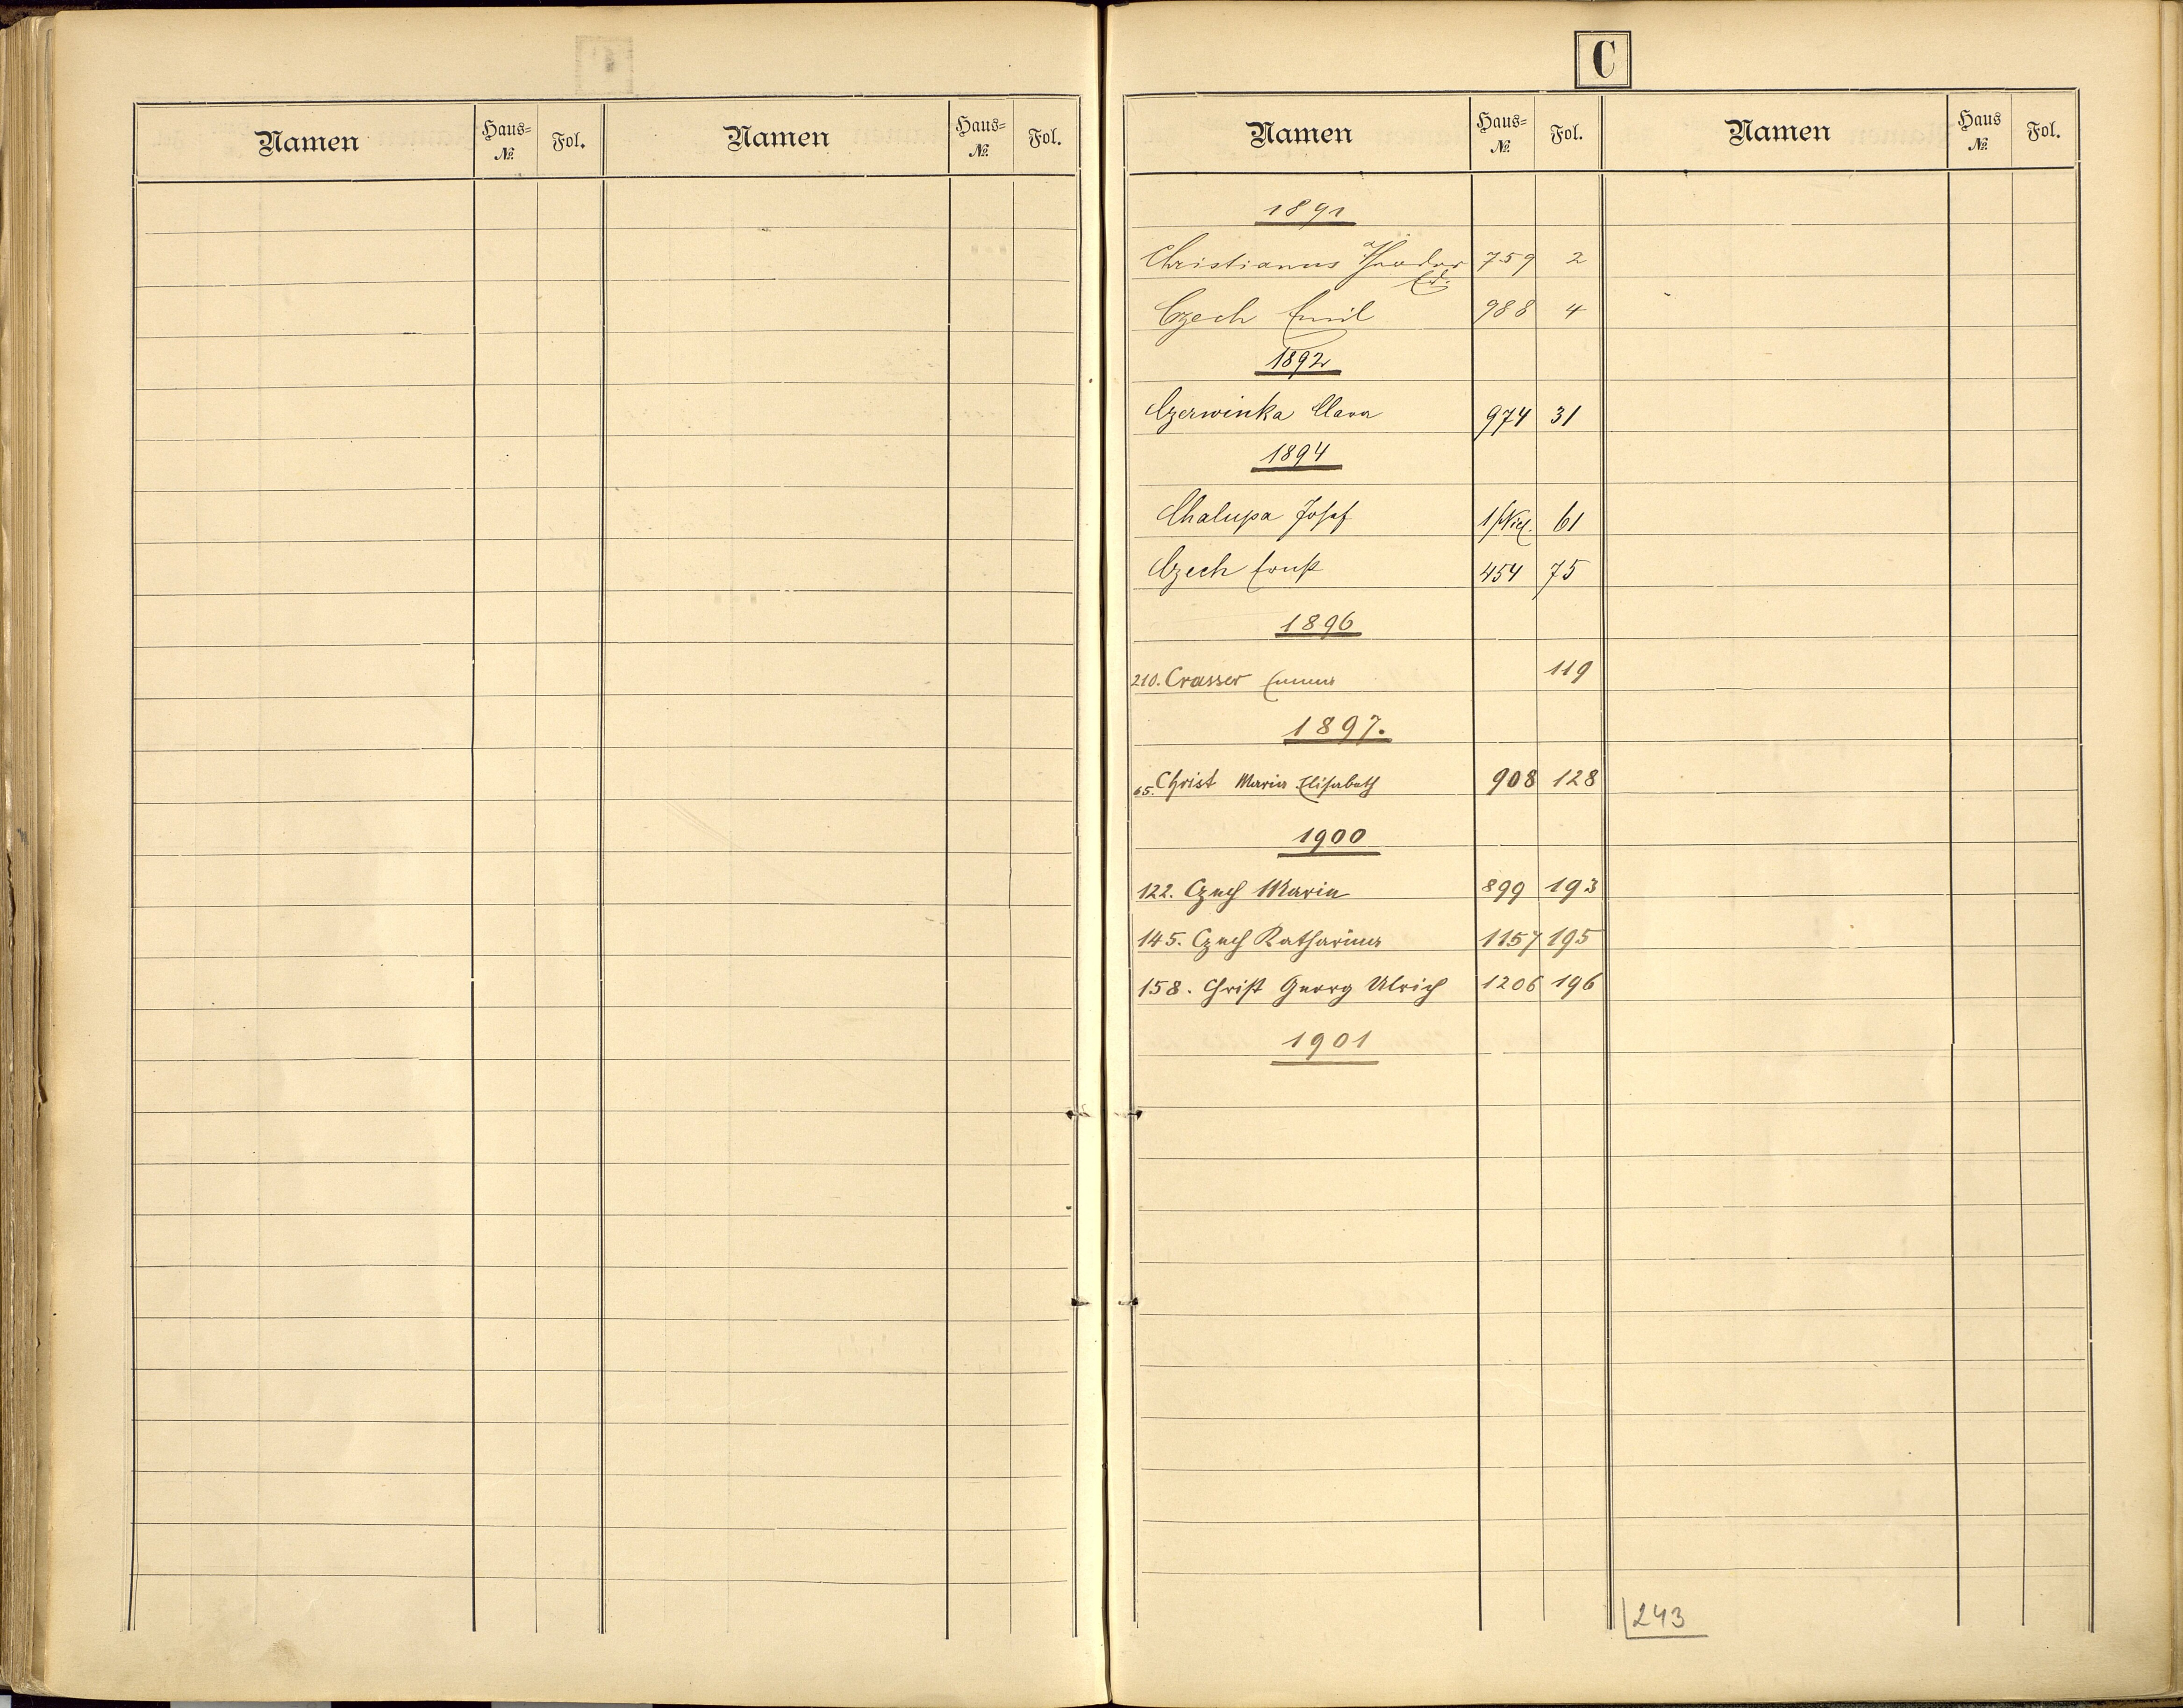 Namen Haus-№ Fol. Namen Haus-№ Fol.
C
Namen Haus-№ Fol. Namen Haus № Fol.
1891
Christianus Theodor 759 2
Ed.
Czech Emil 988 4
1892
Czerwinka Clara 974 31
1894
Chalupa Josef 61
Czech Ernst 454 75
1896
210. Crasser Emma 119
1897.
65. Christ Maria Elisabeth 908 128
1900
122. Czech Maria 899 193
145. Czech Katharina 1157 195
158. Christ Georg Ulrich 1206 196
1901
243